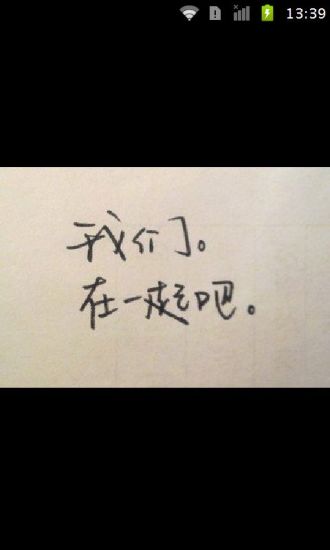 13:39
我们。
在一起吧。